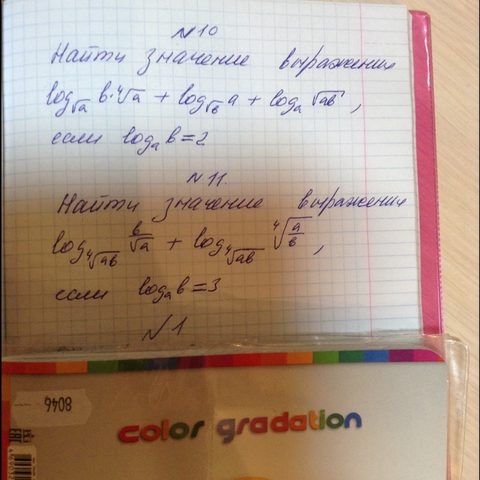 №10
Найти значение выражения
log_√a b·⁴√a + log_√b a + log_a √ab ,
если log_a b = 2
№11.
Найти значение выражения
log_⁴√ab b/√a + log_⁴√ab ⁴√a/b ,
если log_a b = 3
№1
8046
color gradation
EAC